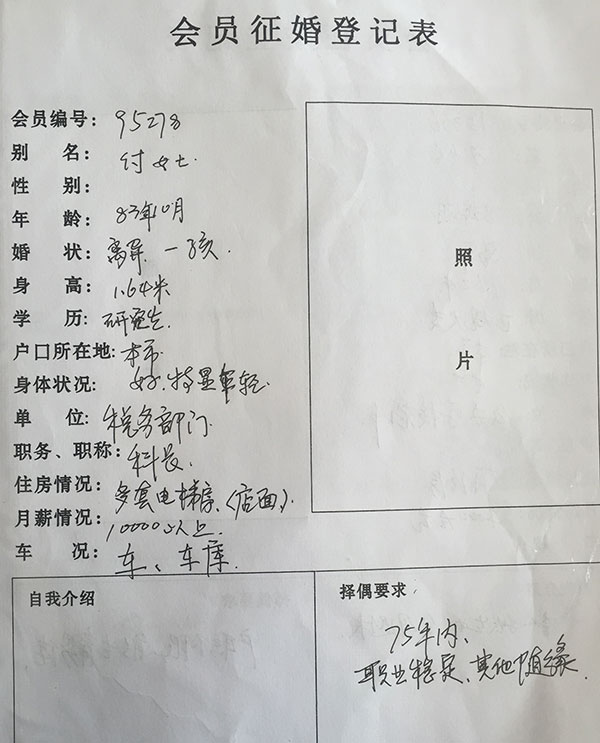 会员征婚登记表
会员编号： 95278
别 名： 付女士.
性 别：
年 龄： 83年10月
婚 状： 离异 一孩.
身 高： 1.64米
学 历： 研究生
户口所在地： 本市
身体状况： 好.特显年轻
单 位： 税务部门
职务、职称： 科长
住房情况： 多套电梯房.(店面).
月薪情况： 10000以上
车 况： 车、车库
照
片
自我介绍
择偶要求
75年内、
职业稳定、其他随缘